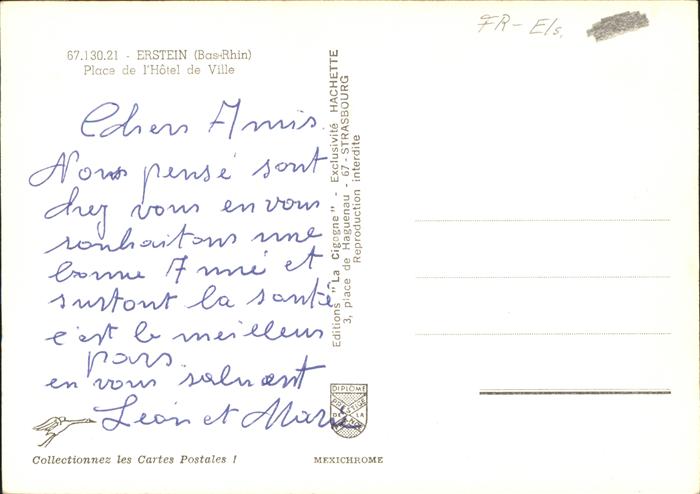 FR - Els.
67.130.21 - ERSTEIN (Bas-Rhin)
Place de l'Hôtel de Ville
Chers Amis.
Nous pensé sont
chez vous en vous
souhaitons une
bonne Anné et
surtout la santé
c'est le meilleus
pars.
en vous saluent
Léon et Marie
Editions "La Cigogne" - Exclusivité HACHETTE
3, place de Haguenau - 67 - STRASBOURG
Reproduction interdite
DIPLOME
PRESTIGE
DE LA
FRANCE
Collectionnez les Cartes Postales !
MEXICHROME